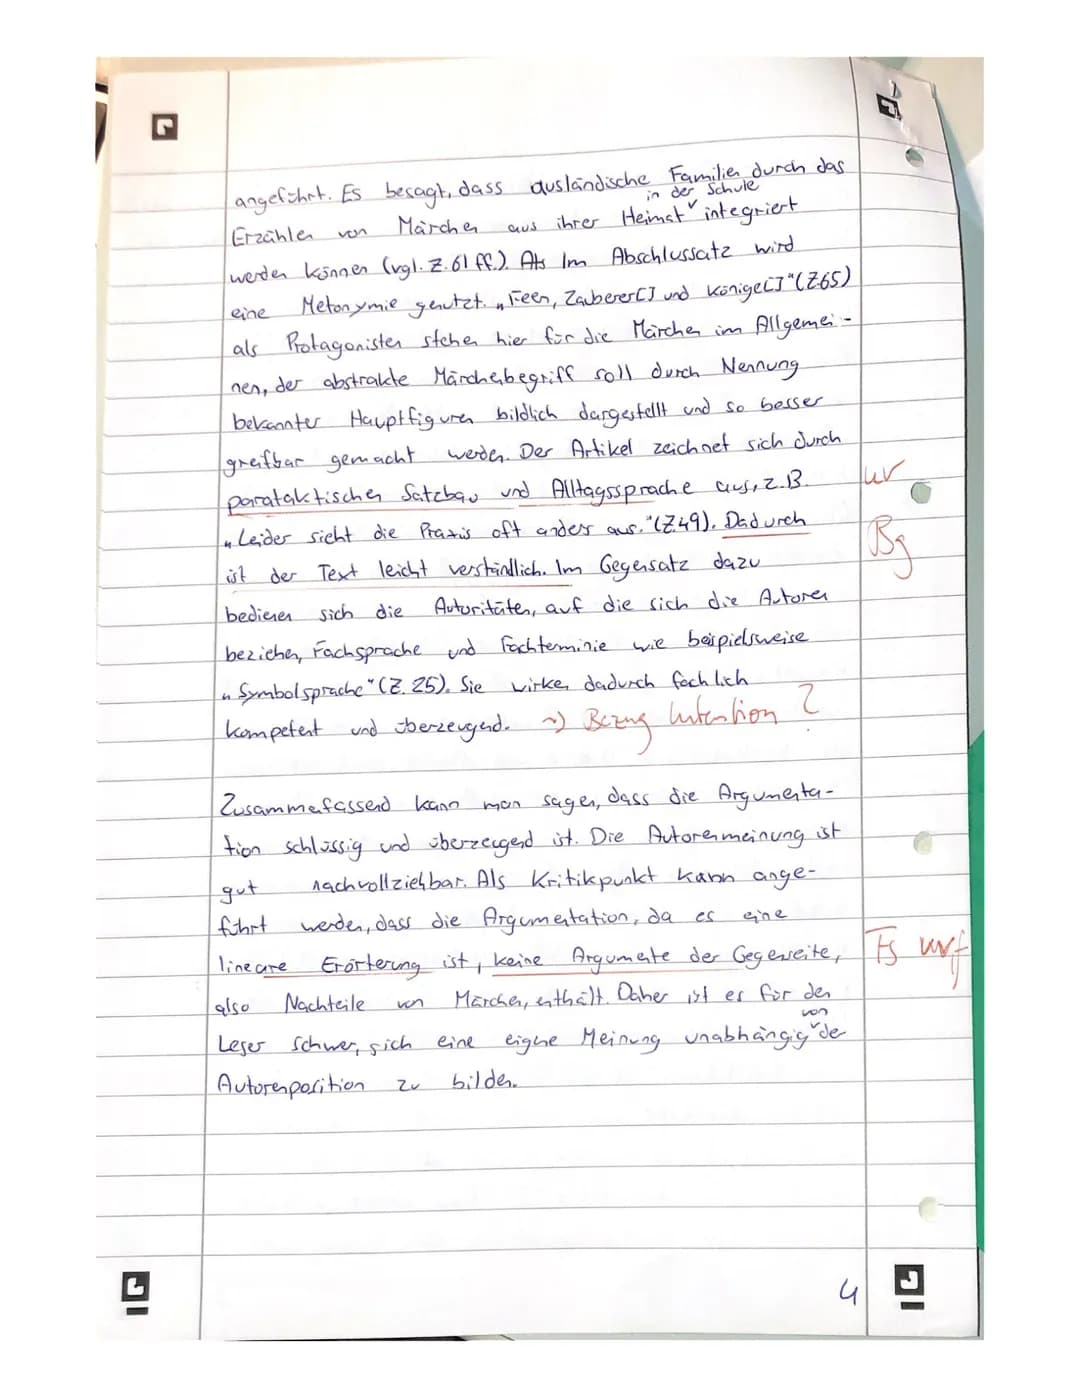 angeführt. Es besagt, dass ausländische Familien durch das
in der Schule
Erzählen von Märchen aus ihrer Heimat ˅ integriert
werden können (vgl. Z. 61 ff.). Als Im Abschlussatz wird
eine Metonymie genutzt. „Feen, Zauberer[] und Könige[]" (Z.65)
als Protagonisten stehen hier für die Märchen im Allgemei-
nen, der abstrakte Märchenbegriff soll durch Nennung
bekannter Hauptfiguren bildlich dargestellt und so besser
greifbar gemacht werden. Der Artikel zeichnet sich durch
parataktischen Satzbau und Alltagssprache aus, z.B.
„Leider sieht die Praxis oft anders aus." (Z.49). Dadurch
Bg
ist der Text leicht verständlich. Im Gegensatz dazu
bedienen sich die Autoritäten, auf die sich die Autoren
beziehen, Fachsprache und Fachterminie wie beispielsweise
„Symbolsprache" (Z. 25). Sie wirken dadurch fachlich
kompetent und überzeugend. ~) Bezug Intention ?
Zusammefassend kann man sagen, dass die Argumenta-
tion schlüssig und überzeugend ist. Die Autorenmeinung ist
gut nachvollziehbar. Als Kritikpunkt kann ange-
führt werden, dass die Argumentation, da es eine
lineare Erörterung ist, keine Argumente der Gegenseite,
also Nachteile von Märchen, enthält. Daher ist es für den
von
Leser schwer, sich eine eigne Meinung unabhängig ˅ der
Autorenposition zu bilden.
4